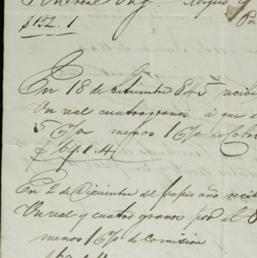 $152.1
En 18 de setiembre 845 recibi
Un real cuatro granos á que
5 % menos 1 % de cobr
$ 64.1.4
En 2 de Diciembre del propio año recib
Un real y cuatro granos por el
menos 1 % de comision